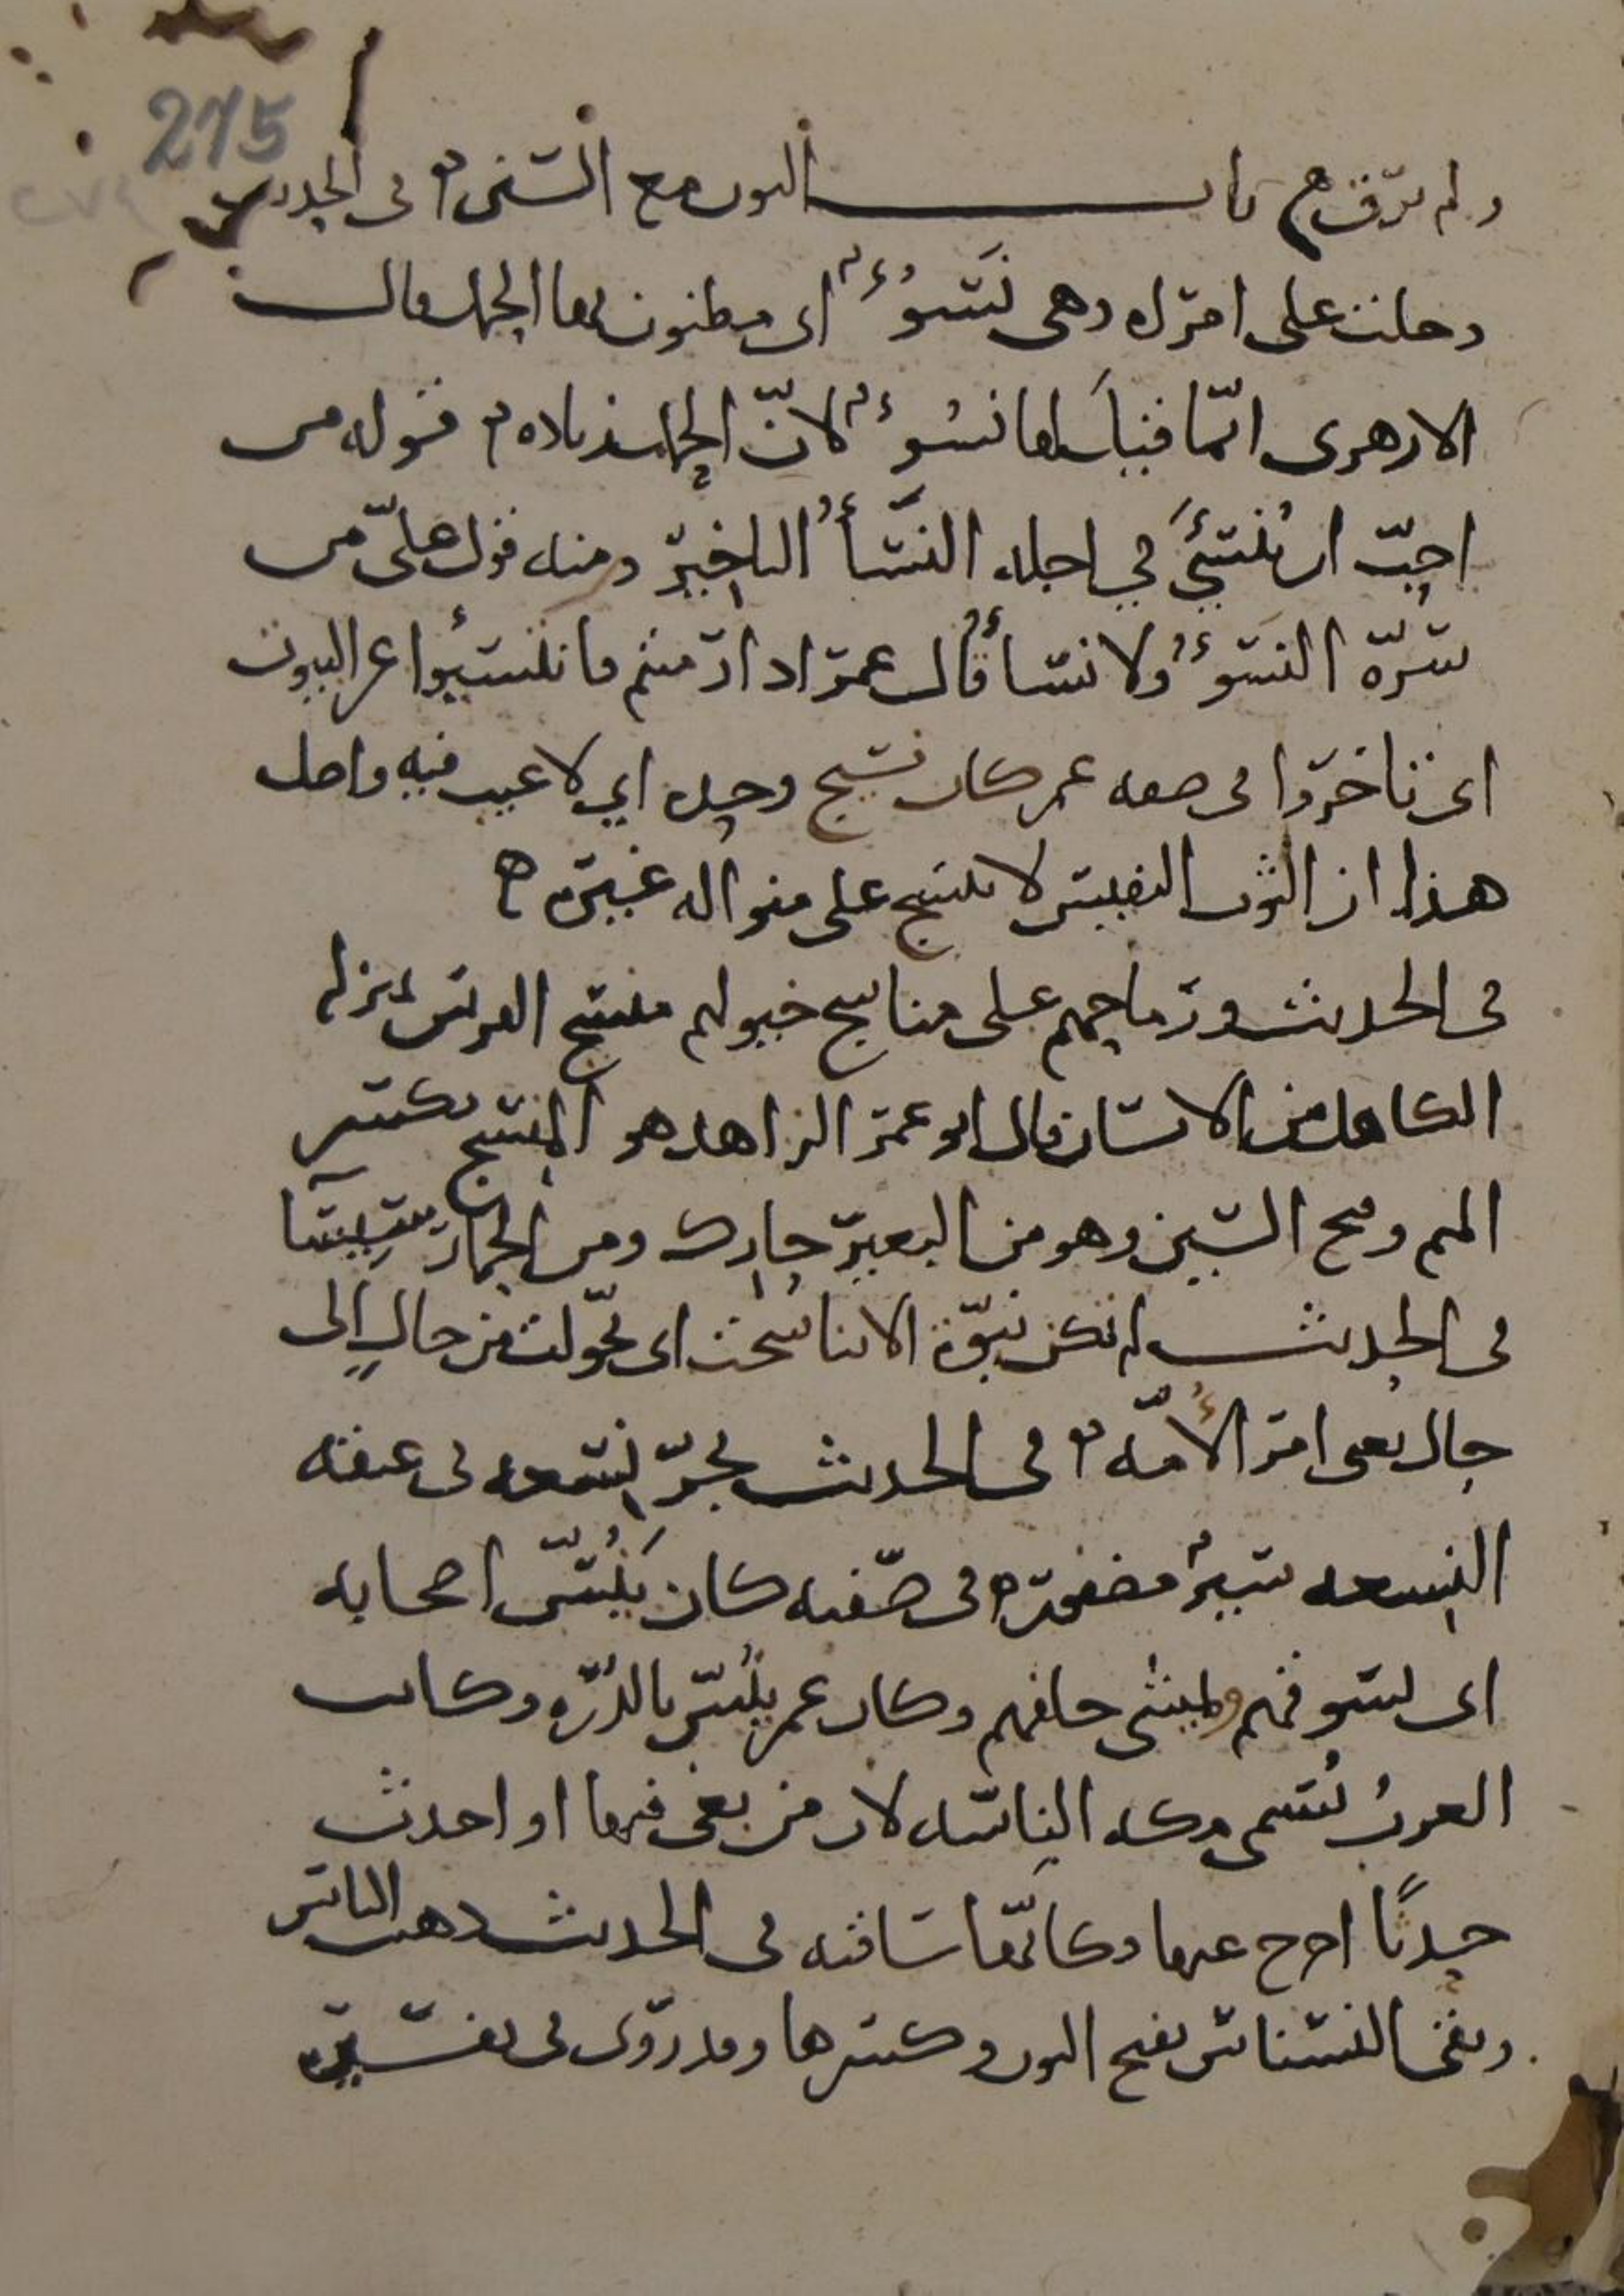 275
ولم ترق ⁂ باب النون مع السين ⁂ في الحديث
دخلت على امراه وهي نسوء اي مظنون بها الحمل قال
الازهري انما قيل لها نسوء لان الحمل زياده ⁂ قوله من
احب ان ينسئ في اجله النسأ التاخير ومنه قول علي من
سره النسوء ولا نسأ قال عمر اذا رميتم فانتسئوا عن البيوت
اي تاخروا في صفه عمر كان نسيج وحده اي لا عيب فيه واصل
هذا ان الثوب النفيس لا ينسج على منواله غيره ⁂
في الحديث ورماحهم على مناسج خيولهم منسج الفرس بمنزله
الكاهل من الانسان قال ابو عمر الزاهد هو المنسج بكسر
الميم وفتح السين وهو من البعير حارك ومن الحمار سيساء
في الحديث لم تكن نبوة الا تناسخت اي تحولت من حال الى
حال يعني امر الأمه ⁂ في الحديث يجر نسعه في عنقه
النسعه سير مضفور في صفته كان ينس اصحابه
اي يسوقهم ويمشي خلفهم وكان عمر ينس بالدره وكانت
العرب تسمي مكه الناسه لان من بغى فيها او احدث
حدثًا اخرج عنها وكانها ساقته في الحديث ذهب الناس
وبقي النسناس بفتح النون وكسرها وقد روي في تفسيره